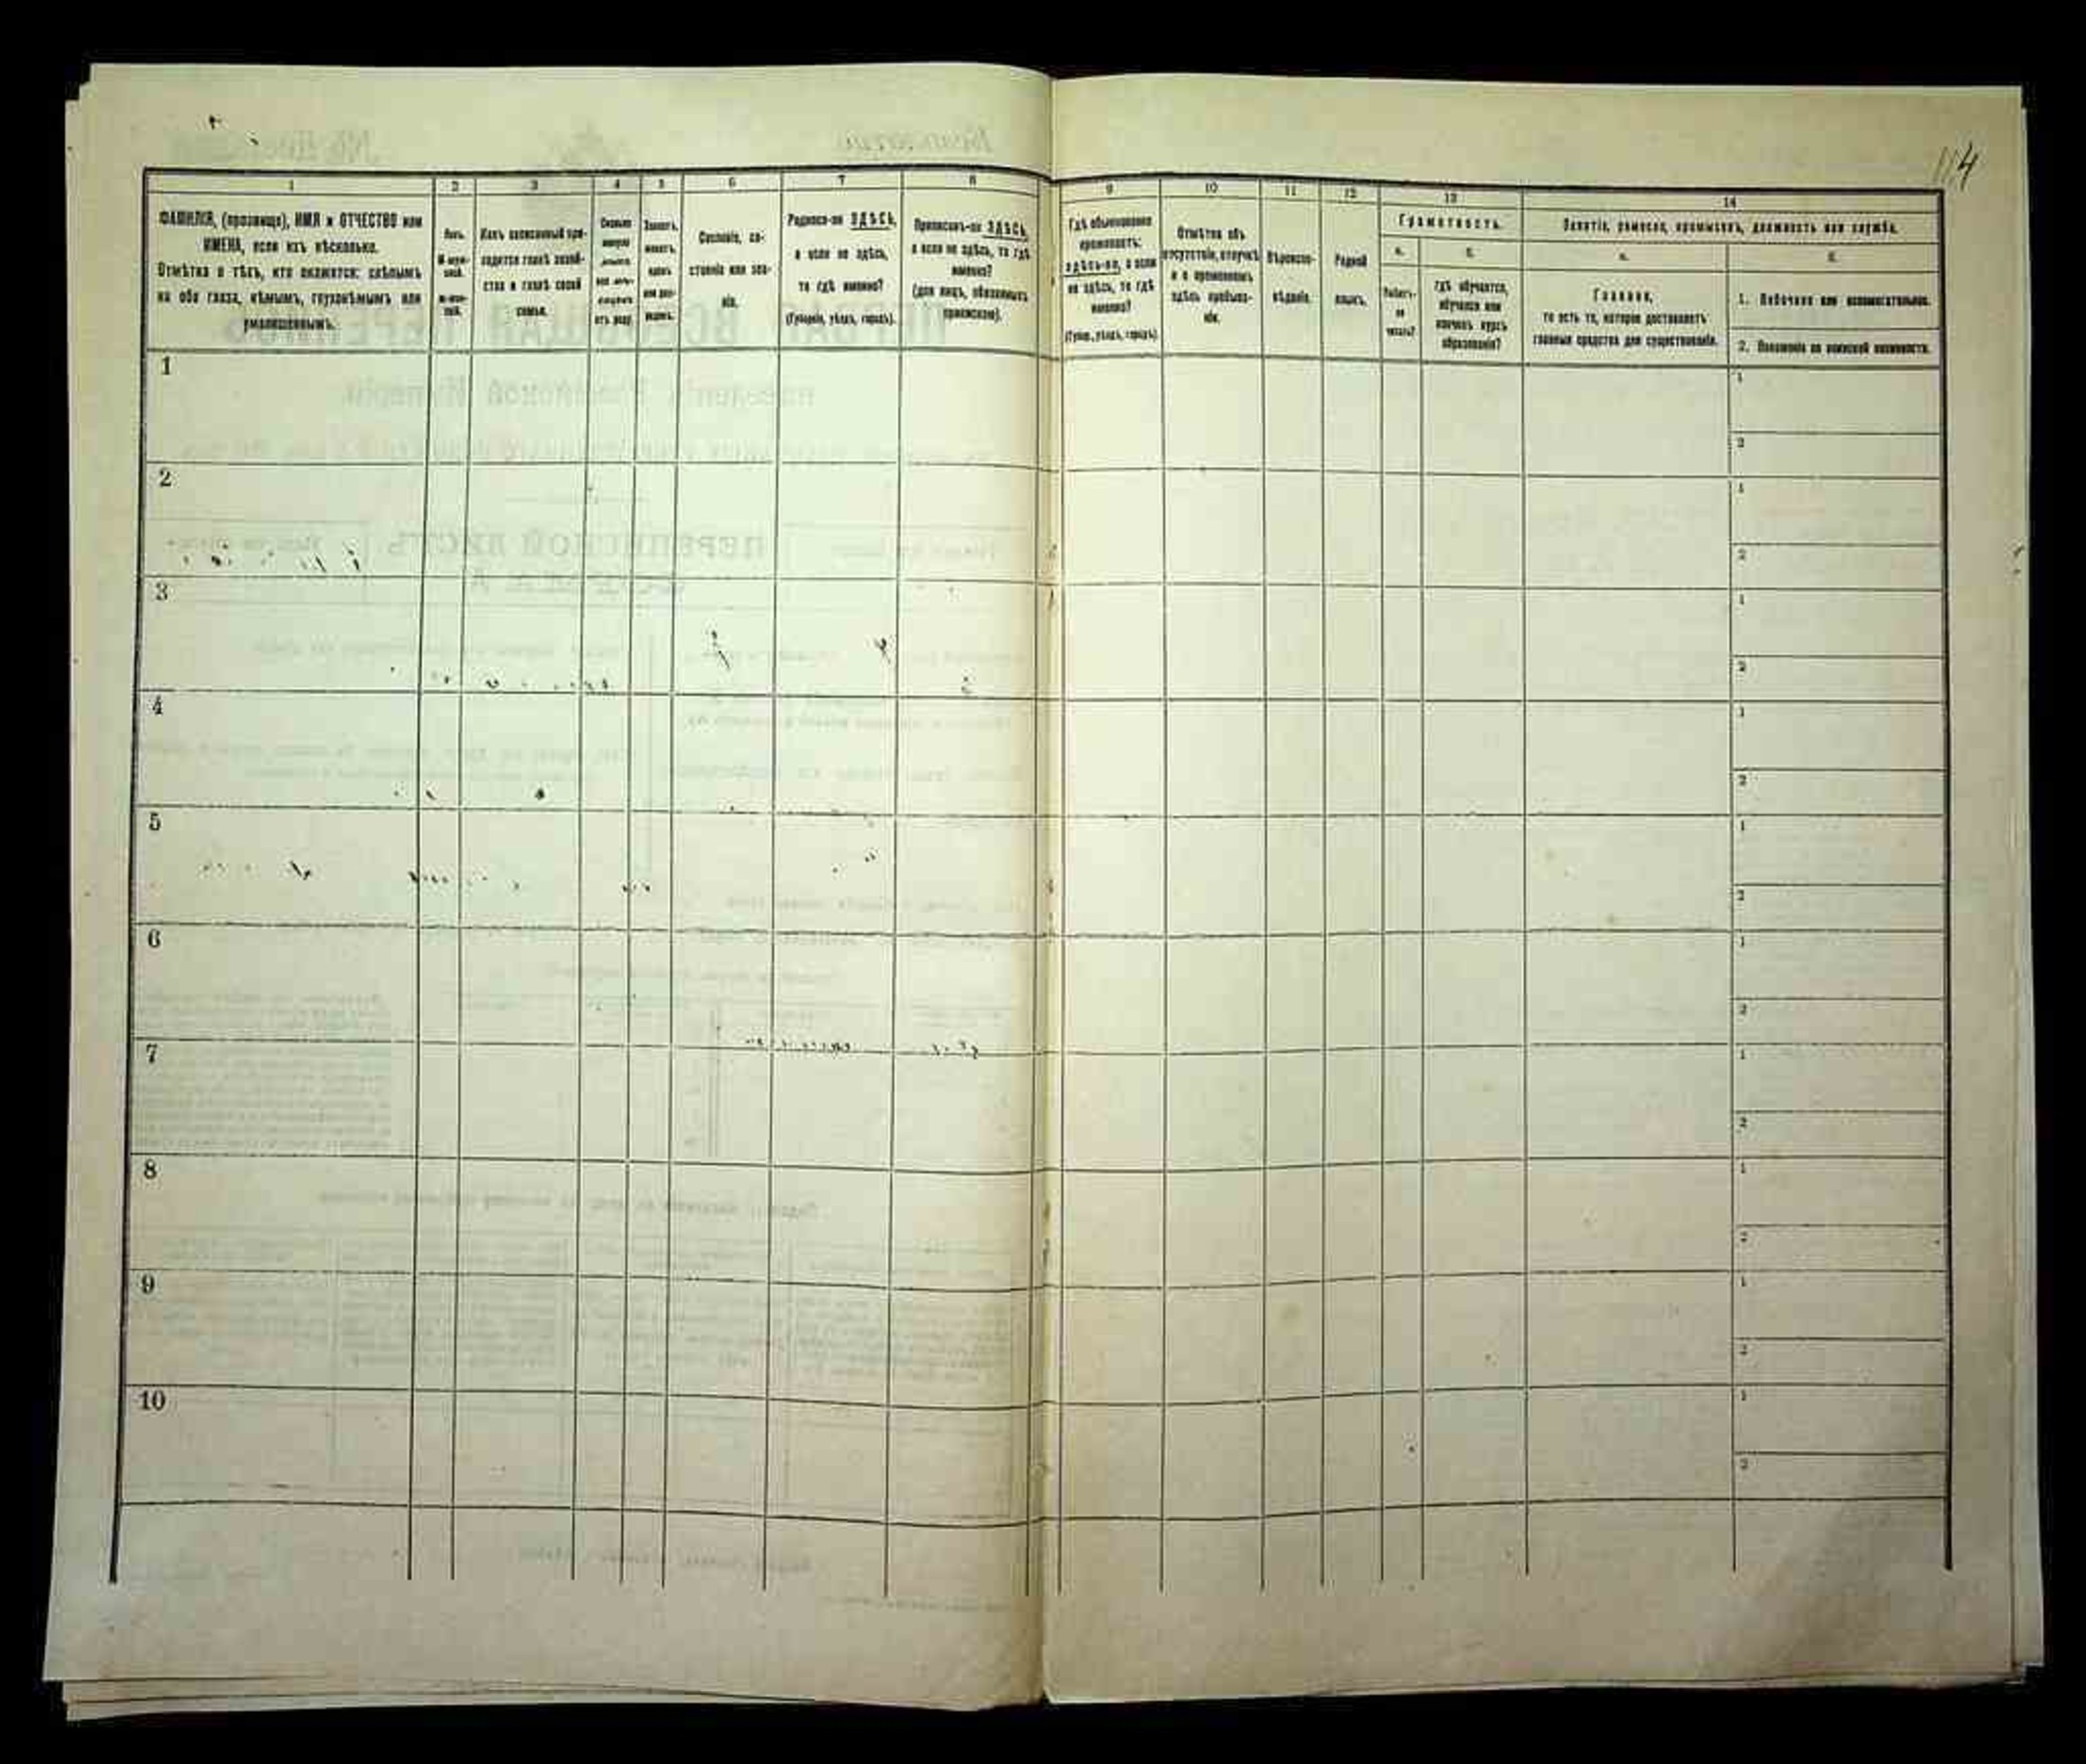 114
1
ФАМИЛІЯ, (прозвище), ИМЯ и ОТЧЕСТВО или
ИМЕНА, если ихъ нѣсколько.
Отмѣтка о тѣхъ, кто окажется: слѣпымъ
на оба глаза, нѣмымъ, глухонѣмымъ или
умалишеннымъ.
2
Полъ.
М-муж-
ской.
Ж-жен-
скій.
3
Какъ записанный при-
ходится главѣ хозяй-
ства и главѣ своей
семьи.
4
Сколько
минуло
лѣтъ
отъ роду.
5
Холостъ,
женатъ,
вдовъ
или раз-
веденъ.
6
Сословіе, со-
стояніе или зва-
ніе.
7
Родился-ли ЗДѢСЬ,
а если не здѣсь,
то гдѣ именно?
(Губернія, уѣздъ, городъ).
8
Приписанъ-ли ЗДѢСЬ,
а если не здѣсь, то гдѣ
именно?
(для лицъ, обязанныхъ
припискою).
9
Гдѣ обыкновенно
проживаетъ:
здѣсь-ли, а если
не здѣсь, то гдѣ
именно?
(Губер., уѣздъ, городъ).
10
Отмѣтка объ
отсутствіи, отлучкѣ
и о временномъ
здѣсь пребыва-
ніи.
11
Вѣроиспо-
вѣданіе.
12
Родной
языкъ.
13
Грамотность.
а.
Умѣетъ-
ли
читать?
б.
гдѣ обучается,
обучался или
кончилъ курсъ
образованія?
14
Занятіе, ремесло, промыселъ, должность или служба.
а.
Главное,
то есть то, которое доставляетъ
главныя средства для существованія.
б.
1. Побочное или вспомогательное.
2. Положеніе по воинской повинности.
1
1
2
2
1
2
3
1
2
4
1
2
5
1
2
6
1
2
7
1
2
8
1
2
9
1
2
10
1
2